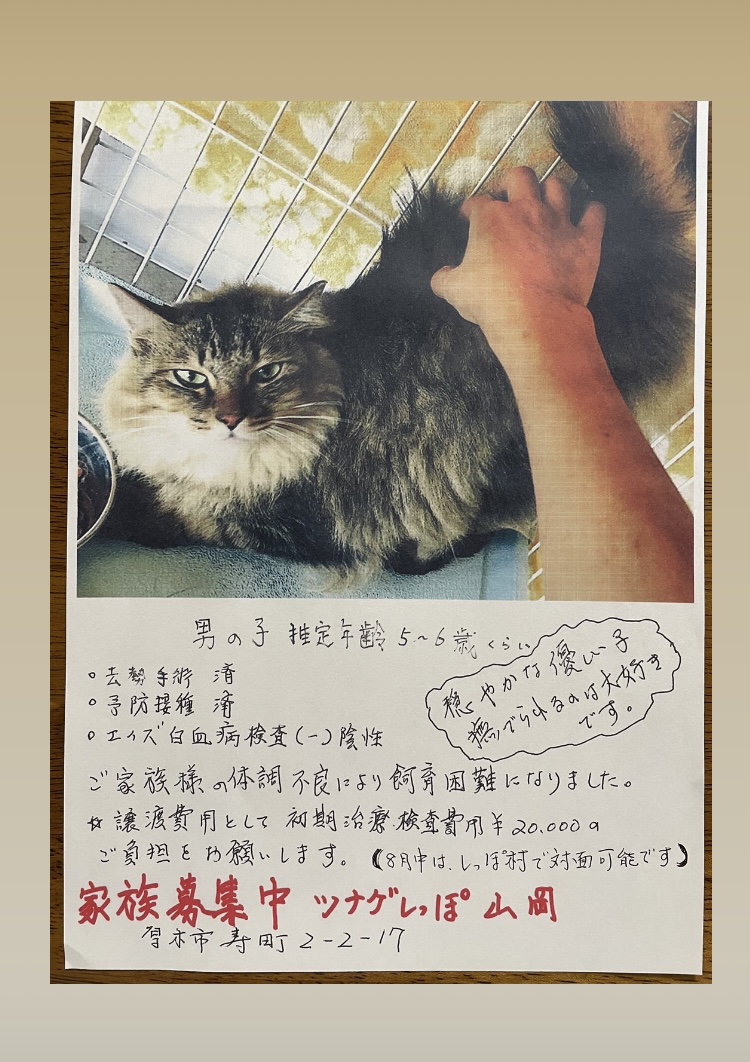 男の子 推定年齢 5~6歳くらい
穏やかな優しい子
撫でられるのは大好き
です。
○去勢手術 済
○予防接種 済
○エイズ白血病検査(-)陰性
ご家族様の体調不良により飼育困難になりました。
☆譲渡費用として 初期治療.検査費用¥20.000の
ご負担をお願いします。(8月中は、しっぽ村で対面可能です)
家族募集中 ツナゲしっぽ 山岡
厚木市寿町2-2-17